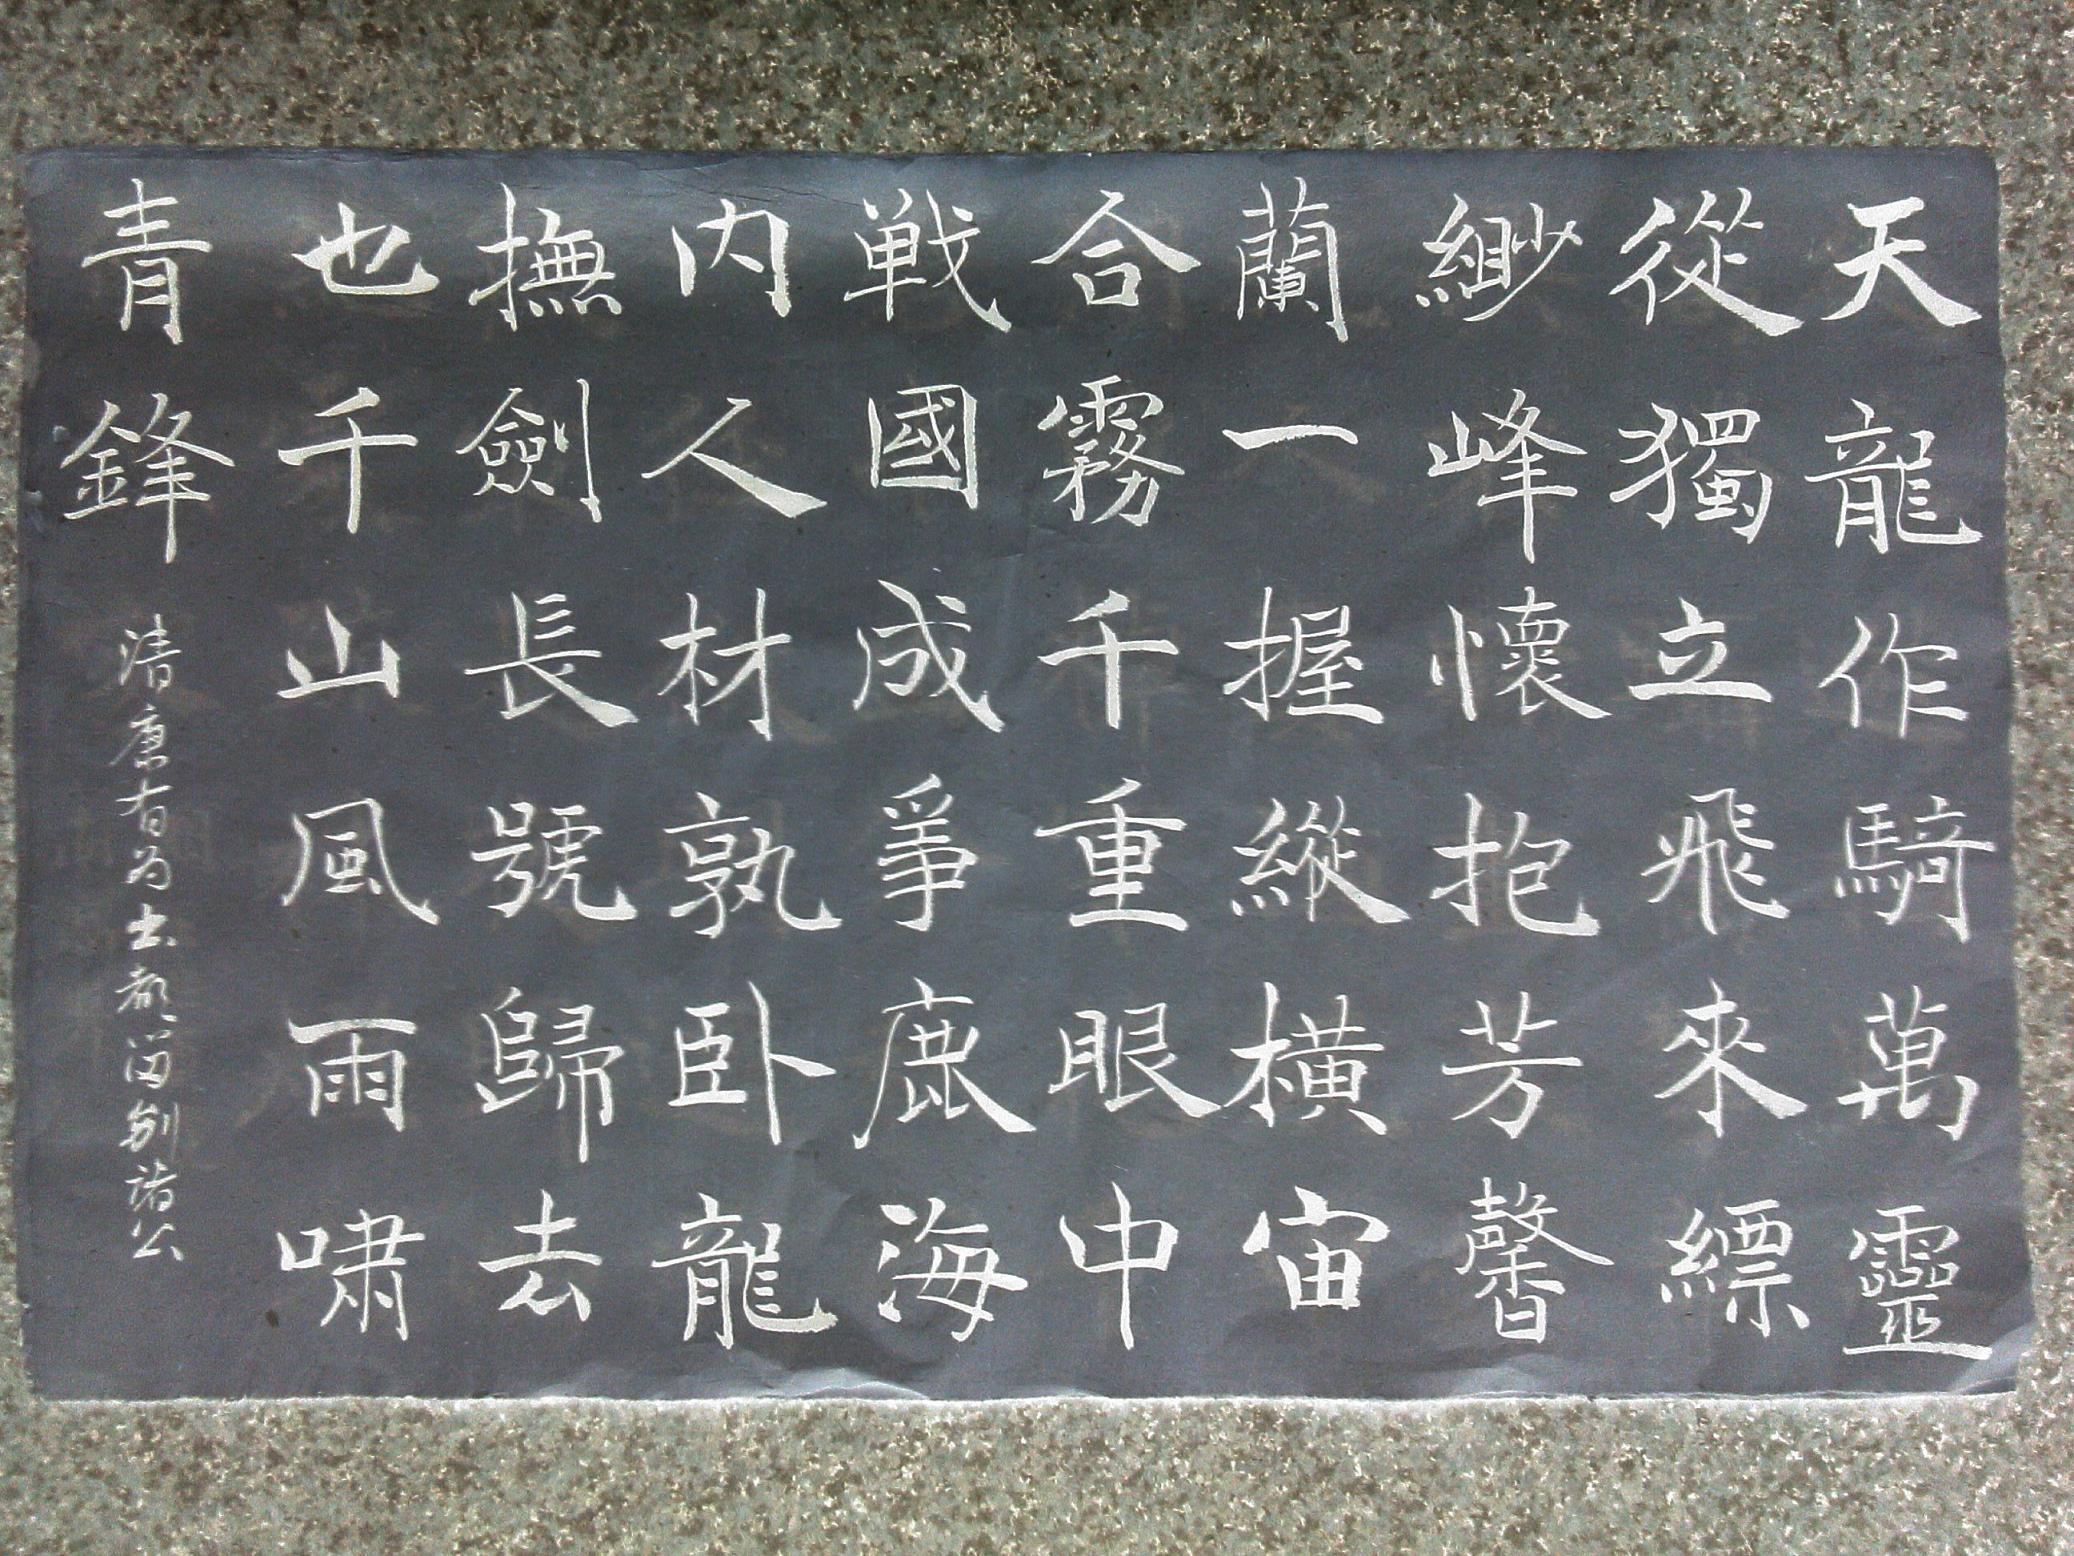 天龍作騎萬靈
從獨立飛來縹
緲峰懷抱芳馨
蘭一握縱橫宙
合霧千重眼中
戦國成爭鹿海
内人材孰卧龍
撫劍長號歸去
也千山風雨啸
青鋒
清康有为出都留别诸公